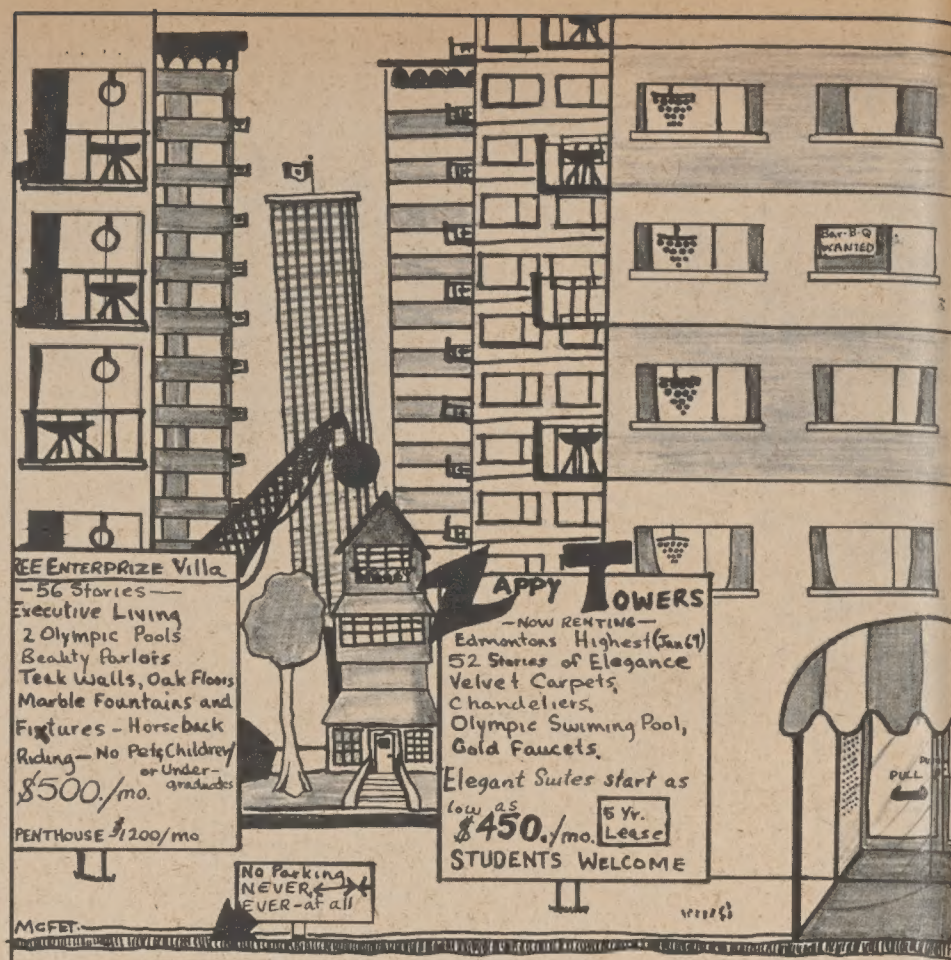 REE ENTERPRIZE Villa
-56 Stories-
Executive Living
2 Olympic Pools
Beauty Parlors
Teak Walls, Oak Floors
Marble Fountains and
Fixtures - Horseback
Riding - No Pets, Children/
or Under-
graduates
$500./mo.
PENTHOUSE $1200/mo
No Parking
NEVER,
EVER-at all
McFET.
ZAPPY TOWERS
-NOW RENTING-
Edmontons Highest (Jan 69)
52 Stories of Elegance
Velvet Carpets,
Chandeliers,
Olympic Swiming Pool,
Gold Faucets.
Elegant Suites start as
low as
$450./mo.
5 Yr.
Lease
STUDENTS WELCOME
Bar-B-Q
WANTED
PULL